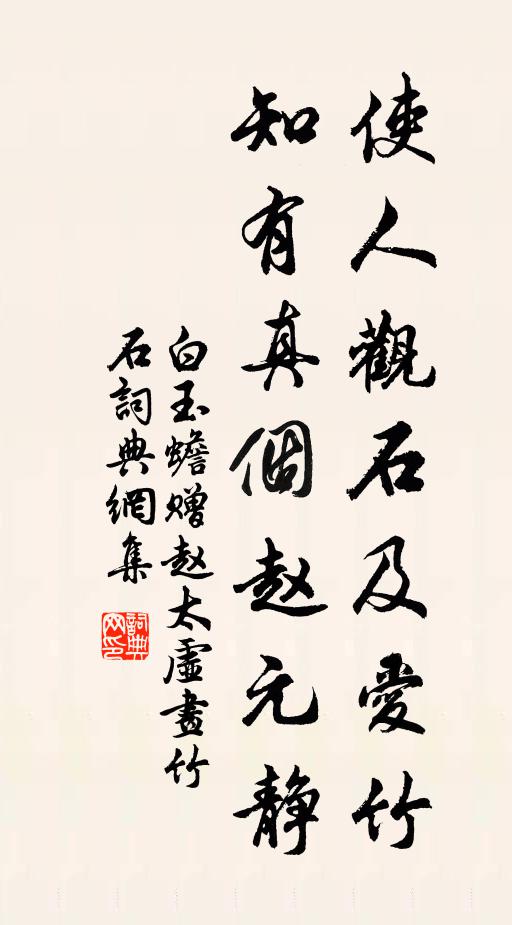 使人觀石及愛竹
知有真個赵元静
白玉蟾赠赵太虛畫竹
石詞典網集
詞典
网印